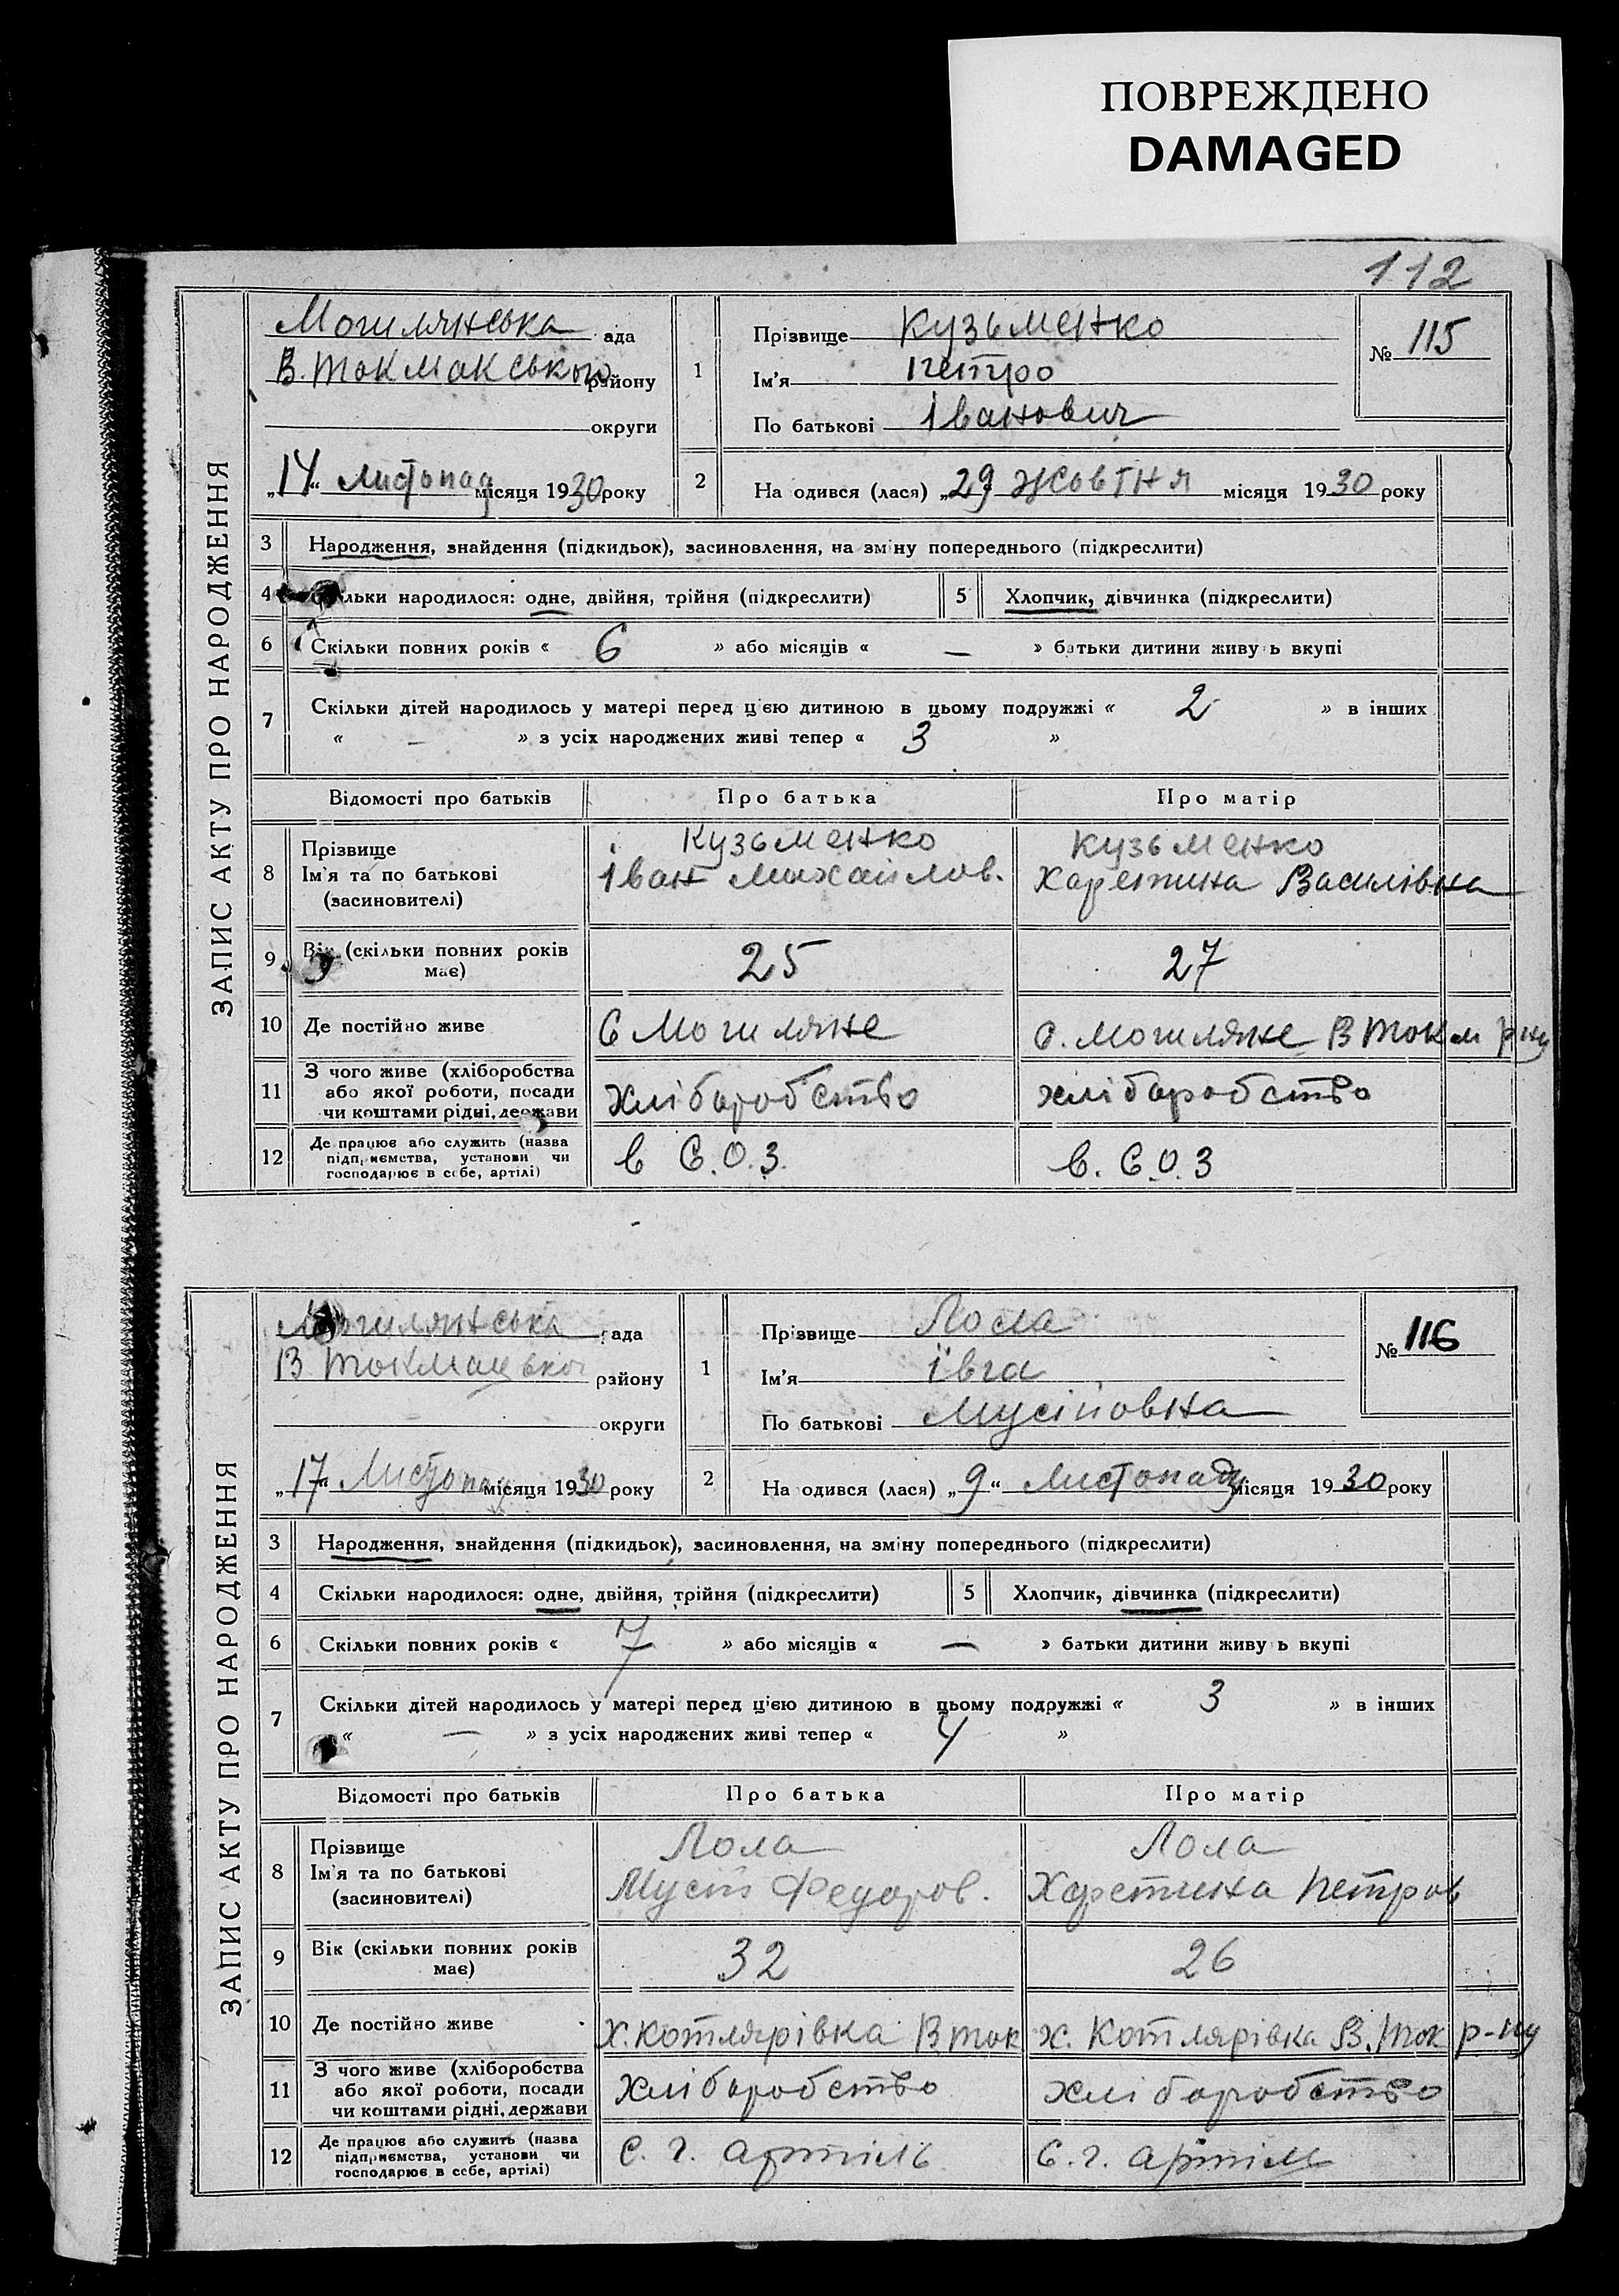 ПОВРЕЖДЕНО
DAMAGED
112
ЗАПИС АКТУ ПРО НАРОДЖЕННЯ
Могилянська рада
В. Токмакського району
округи
„14“ листопад місяця 1930 року
1
Прізвище Кузьменко
Ім'я Петро
По батькові Іванович
№ 115
2 На одився (лася) „29 жовтня місяця 1930 року
3 Народження, знайдення (підкидьок), засиновлення, на зміну попереднього (підкреслити)
4 Скільки народилося: одне, двійня, трійня (підкреслити) 5 Хлопчик, дівчинка (підкреслити)
6 Скільки повних років « 6 » або місяців « — » батьки дитини живу ь вкупі
7 Скільки дітей народилось у матері перед цією дитиною в цьому подружжі « 2 » в інших
« — » з усіх народжених живі тепер « 3 »
Відомості про батьків Про батька Про матір
8 Прізвище Кузьменко Кузьменко
Ім'я та по батькові Іван Михайлов. Харетина Василівна
(засиновителі)
9 Вік (скільки повних років має) 25 27
10 Де постійно живе С Могиляне С. Могиляне В Токм р-ну
11 З чого живе (хліборобства
або якої роботи, посади
чи коштами рідні, держави хліборобство хліборобство
12 Де працює або служить (назва
підприємства, установи чи
господарює в себе, артілі) в С.О.З. в. С.О.З
ЗАПИС АКТУ ПРО НАРОДЖЕННЯ
Могилянська рада
В Токмацького району
округи
„17“ Листопад місяця 1930 року
1
Прізвище Лола
Ім'я Івга
По батькові Мусіповна
№ 116
2 На одився (лася) „9“ Листопад місяця 1930 року
3 Народження, знайдення (підкидьок), засиновлення, на зміну попереднього (підкреслити)
4 Скільки народилося: одне, двійня, трійня (підкреслити) 5 Хлопчик, дівчинка (підкреслити)
6 Скільки повних років « 7 » або місяців « — » батьки дитини живу ь вкупі
7 Скільки дітей народилось у матері перед цією дитиною в цьому подружжі « 3 » в інших
« — » з усіх народжених живі тепер « 4 »
Відомості про батьків Про батька Про матір
8 Прізвище Лола Лола
Ім'я та по батькові Мусій Федоров. Харетина Петров
(засиновителі)
9 Вік (скільки повних років має) 32 26
10 Де постійно живе Х. Котлярівка В Ток х. Котлярівка В. Ток р-ну
11 З чого живе (хліборобства
або якої роботи, посади
чи коштами рідні, держави хліборобство хліборобство
12 Де працює або служить (назва
підприємства, установи чи
господарює в себе, артілі) С. г. артіль С. г. артіль